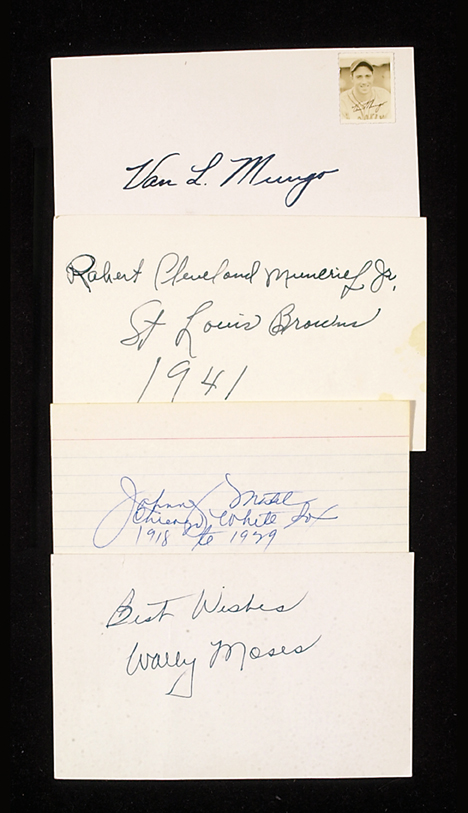 Van L. Mungo
Robert Cleveland Muncrief Jr.
St Louis Browns
1941
Johnny Mostil
Chicago White Sox
1918 to 1929
Best Wishes
Wally Moses